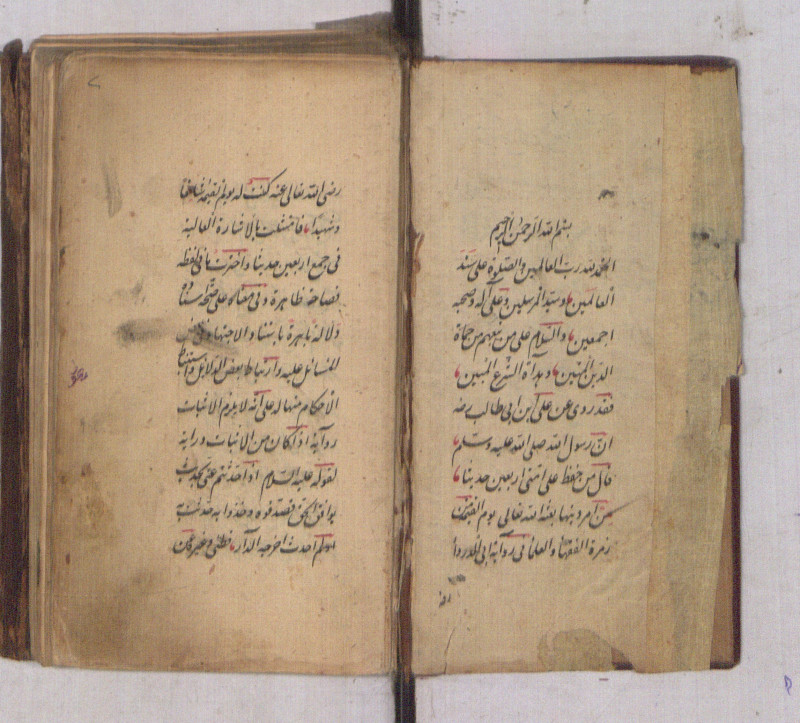 بسم الله الرحمن الرحيم
الحمد لله رب العالمين والصلوة على سند
العالمين وسيد المرسلين وعلى آله وصحبه
اجمعين والسلام على من تبعهم من حماة
الدين المتين وهداة الشرع المبين
فقد روى عن على ابن ابى طالب رضه
ان رسول الله صلى الله عليه وسلم
قال من حفظ على امتى اربعين حديثا
من امر دينها بعثه الله تعالى يوم القيمة فى
زمرة الفقهاء والعلماء فى رواية ابى الدرداء
رضى الله تعالى عنه كنت له يوم القيمة شافعا
وشهيدا فامتثلت بالاشارة العالية
فى جمع اربعين حديثا واخترت ما فى لفظه
فصاحة ظاهرة وفى معناه على صحة اسناده
دلالة باهرة يا بتنا والاجتهاد
للمسائل عليه وارتباط بعض الدلايل واستنباط
الاحكام منها له على انه لا يلزم الاثبات
رواية اذا كان من الاثبات دراية
لقوله عليه السلام اذا حدثتم عنى بحديث
يوافق الحق فصدقوه وخذوا به حدثت به
او لم احدث اخرجه الدار قطنى وغيره عن